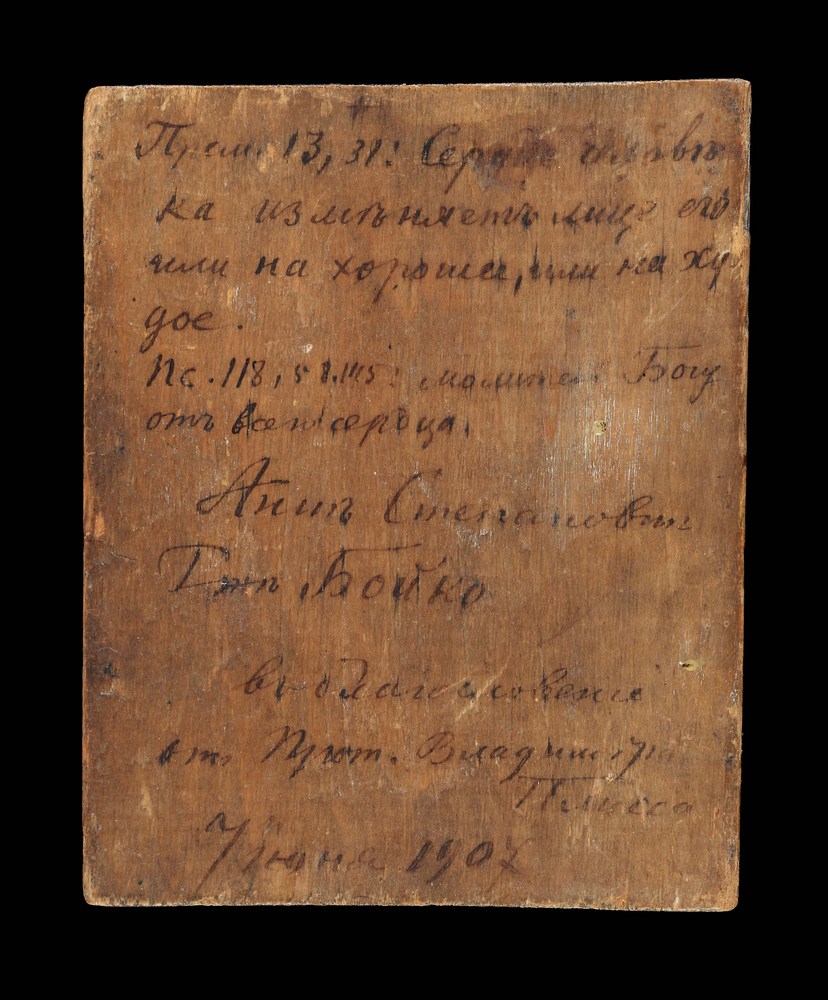 Прем. 13, 31: Сердце человѣ
ка измѣняетъ лице его
или на хорошее, или на ху
дое.
Пс. 118, 58.145: молитесь Богу
отъ всего сердца.
Аннѣ Степановнѣ
Гжѣ Бойко
въ благословеніе
отъ Прот. Владиміра
Плисса
7 іюня 1907